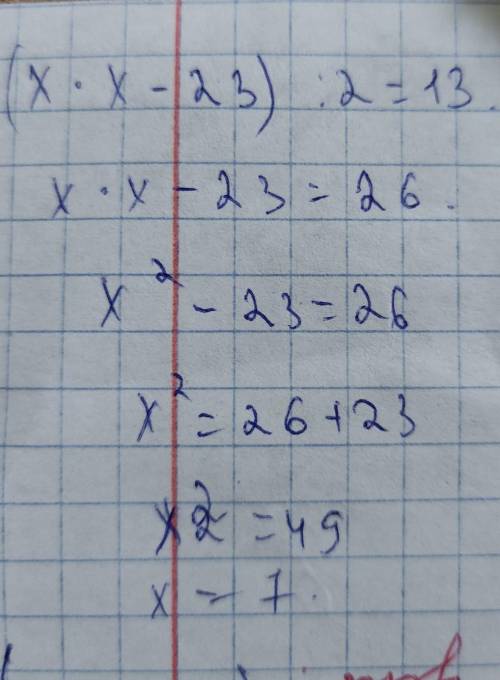 (x · x - 23) : 2 = 13.
x · x - 23 = 26.
x² - 23 = 26
x² = 26 + 23
x2 = 49
x = 7.